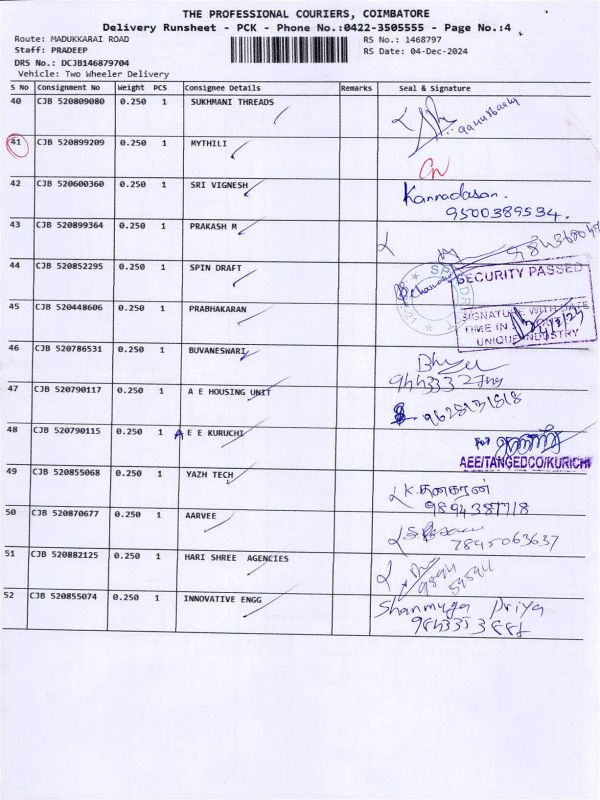 THE PROFESSIONAL COURIERS, COIMBATORE
Delivery Runsheet - PCK - Phone No.:0422-3505555 - Page No.:4
Route: MADUKKARAI ROAD RS No.: 1468797
Staff: PRADEEP RS Date: 04-Dec-2024
DRS No.: DCJB146879704
Vehicle: Two Wheeler Delivery
S No Consignment No Weight PCS Consignee Details Remarks Seal & Signature
40 CJB 520809080 0.250 1 SUKHMANI THREADS
41 CJB 520899209 0.250 1 MYTHILI
CN
42 CJB 520600360 0.250 1 SRI VIGNESH Kannadasan.
9500389534.
43 CJB 520899364 0.250 1 PRAKASH M
44 CJB 520852295 0.250 1 SPIN DRAFT
SECURITY PASSED
SIGNATURE WITH DATE
TIME IN
UNIQUE INDUSTRY
45 CJB 520448606 0.250 1 PRABHAKARAN
46 CJB 520786531 0.250 1 BUVANESWARI
47 CJB 520790117 0.250 1 A E HOUSING UNIT
48 CJB 520790115 0.250 1 A E E KURUCHI
For
AEE/TANGEDCO/KURICHI
49 CJB 520855068 0.250 1 YAZH TECH
9894387718
50 CJB 520870677 0.250 1 AARVEE
7845063637
51 CJB 520882125 0.250 1 HARI SHREE AGENCIES
52 CJB 520855074 0.250 1 INNOVATIVE ENGG Shanmuga Priya